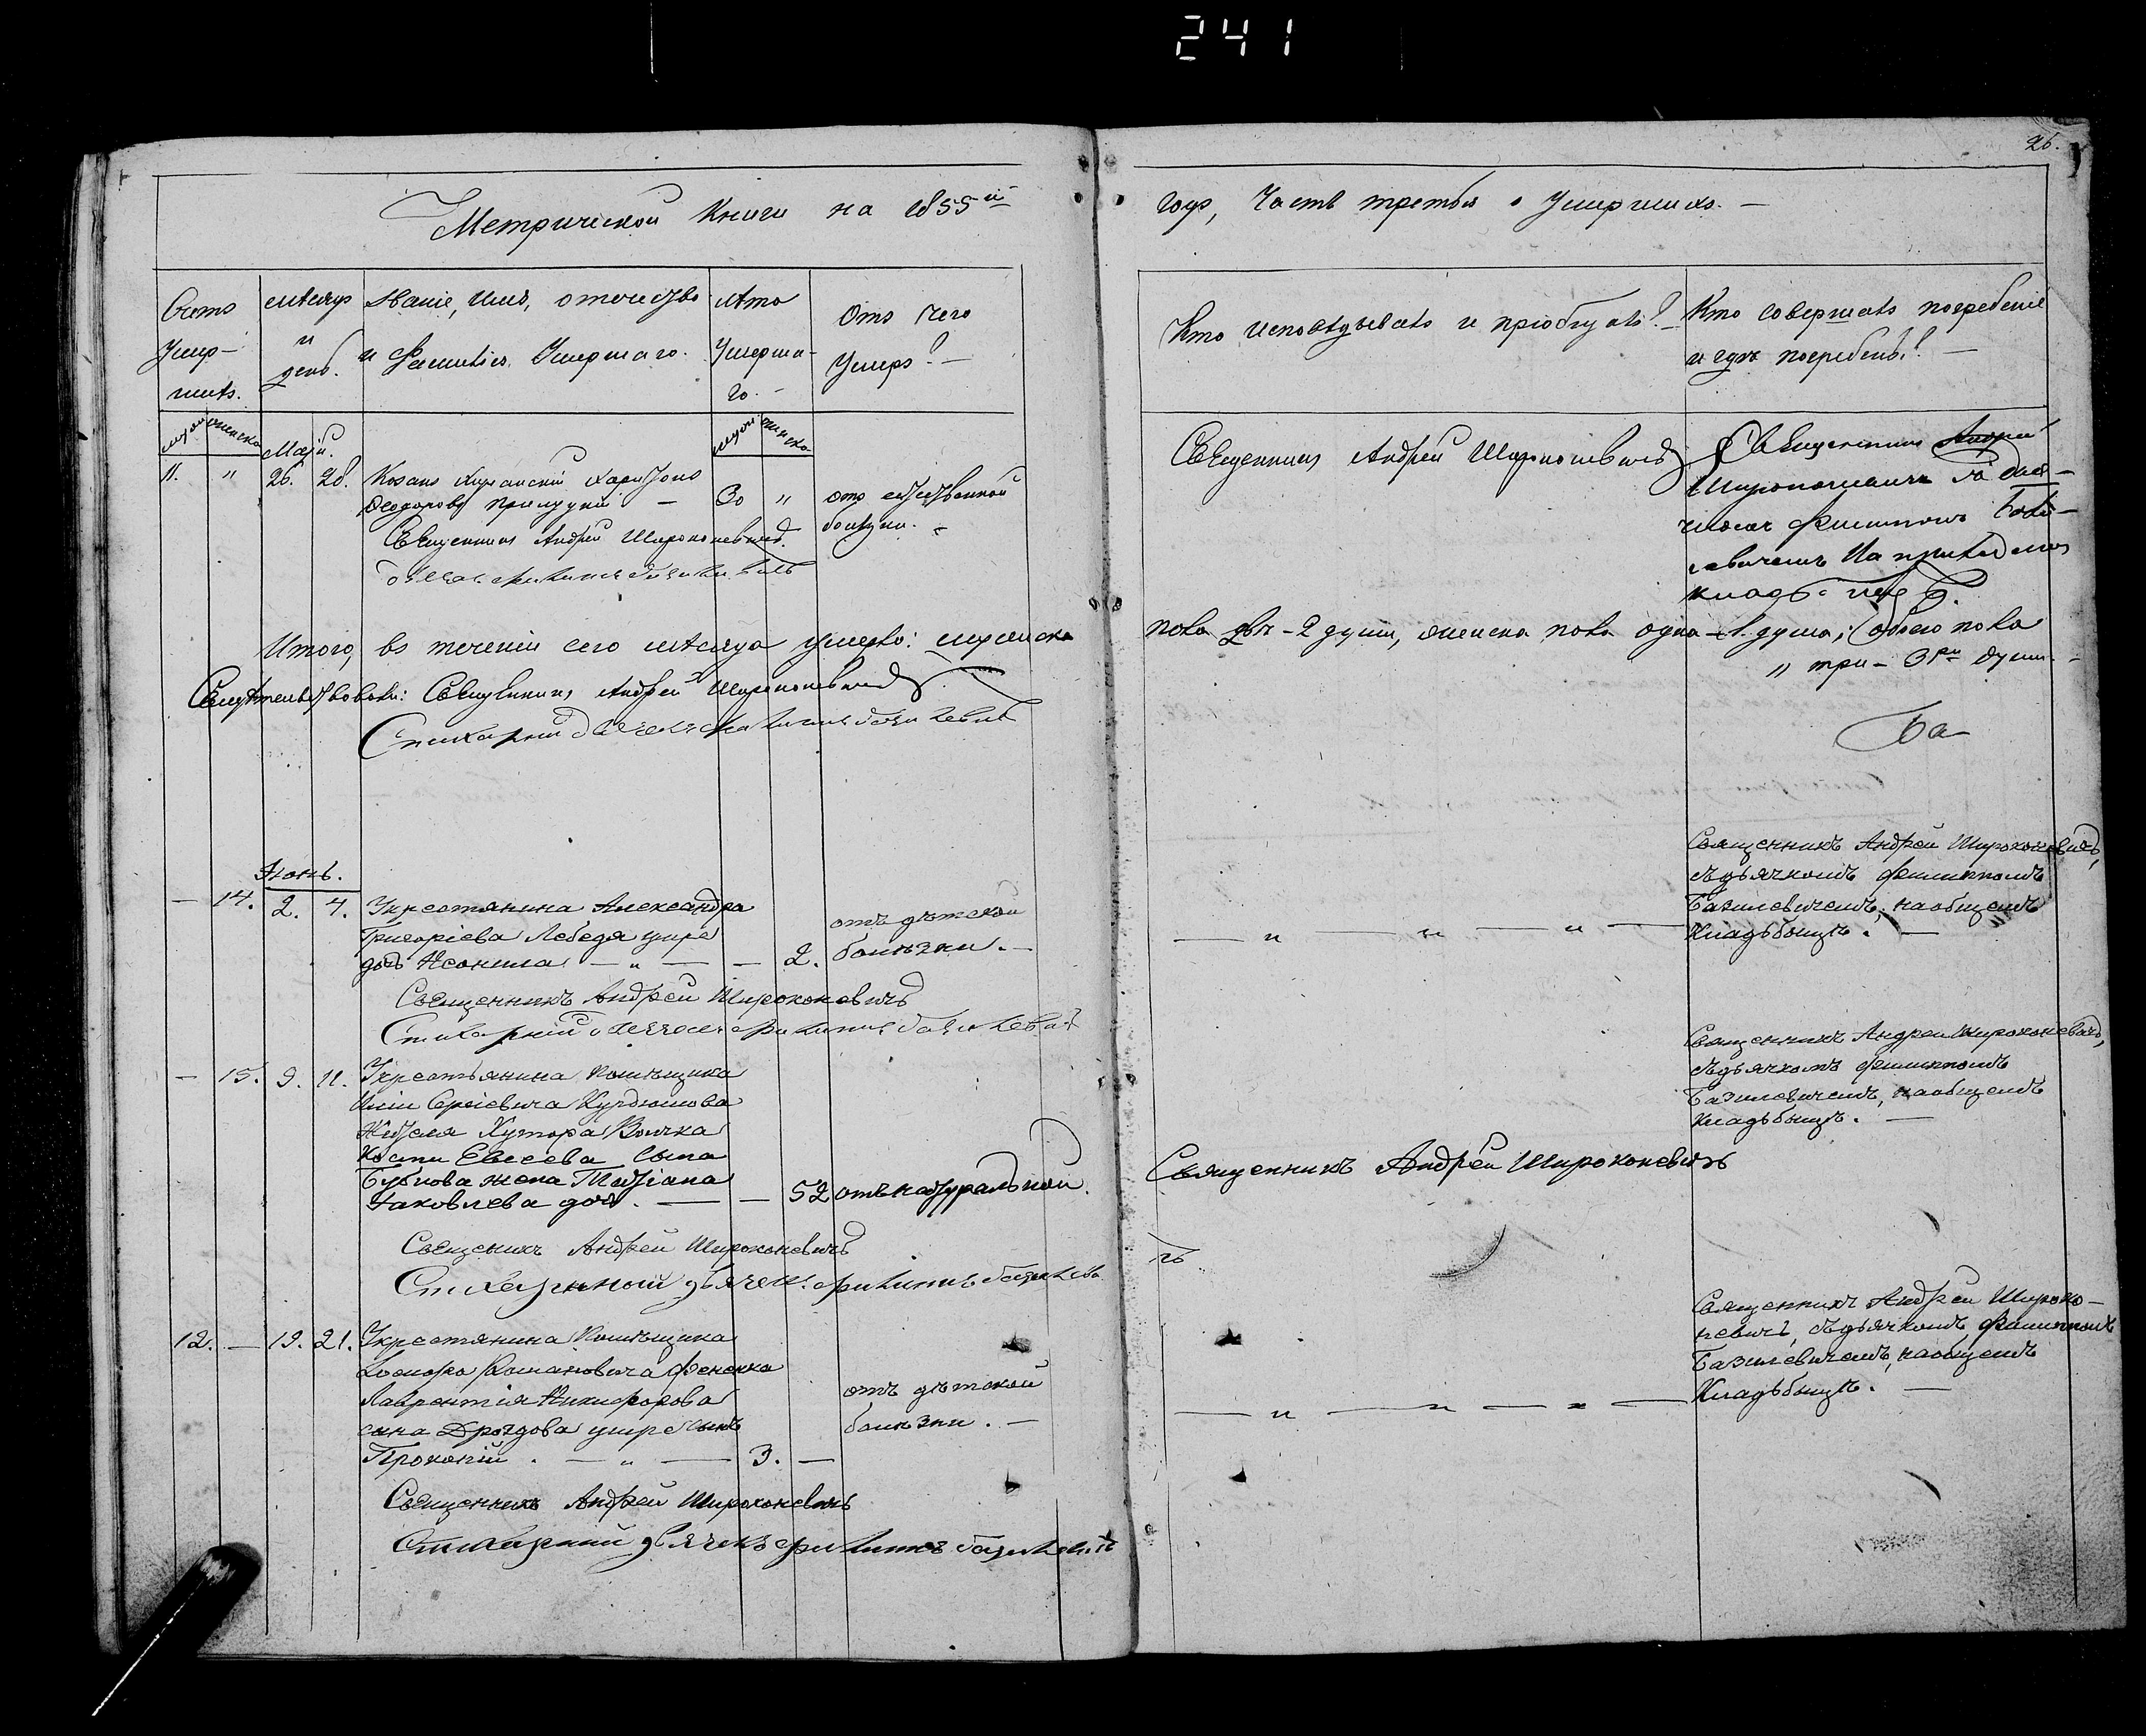 241
26.
Метрической Книги на 1855й
годъ, Часть третья о Умершихъ. —
Счетъ
Умер-
шихъ.
мѣсяцъ
и
день.
Званіе, имя, отечество
и Фамилія Умершаго.
Лѣта
Умерша-
го. -
Отъ чего
Умеръ? —
Кто исповѣдывалъ и пріобщалъ? —
Кто совершалъ погребеніе
и гдѣ погребены? —
муж. женска
Маій.
муж. женска
11. " 26. 28. Козакъ Харитонъ
Ѳеодоровъ — 30 " отъ естественной
болѣзни. -
Священникъ Андрей Широконевичъ
Священникъ Андрей Широконевичъ
Священникъ Андрей
Филиппомъ
Итого, въ теченіи сего мѣсяца умерло: мужеска
пола двѣ - 2 души, женска пола одна - 1. душа; обоего пола
" три - 3 души. -
Свидѣтельствовали: Священникъ Андрей Широконевичъ
Стихарный дьячекъ Филиппъ Базилевичъ
Ба-
Іюнь.
— 14. 2. 4. Укрестянина Александра
Григоріева Лебедя умре
дочь — " — — 2.
отъ дѣтской
болѣзни. —
— " — " — " —
Священникъ Андрей Широконевичъ,
съдьячкомъ Филиппомъ
Базилевичемъ, наобщемъ
Кладьбищѣ. —
Священникъ Андрей Широконевичъ
Стихарный дьячекъ Филиппъ Базилевичъ
— 15. 9. 11. Укрестьянина Помѣщика
Сергіевича Курдюмова
Жителя Хутора Волчка
Евсеева сына
Бубнова жена Татіана
Яковлева доч. — — 52 отънатуральной.
Священникъ Андрей Широконевичъ
Священникъ Андрей Широконевичъ,
съдьячкомъ Филиппомъ
Базилевичемъ, наобщемъ
Кладьбищѣ. —
Священикъ Андрей Широконевичъ
Стихарный дьячекъ Филиппъ Базилевичъ
12. — 19. 21. Укрестянина Помѣщика
Романовича Фененка
Лаврентія Никифорова
сына Дроздова умре сынъ
Прокопій . — " — 3. —
отъ дѣтской
болѣзни. —
— " — " — " —
Священникъ Андрей Широко-
невичъ, съдьячкомъ Филиппомъ
Базилевичемъ, наобщемъ
Кладьбищѣ. —
Священникъ Андрей Широконевичъ
Стихарный дьячекъ Филиппъ Базилевичъ